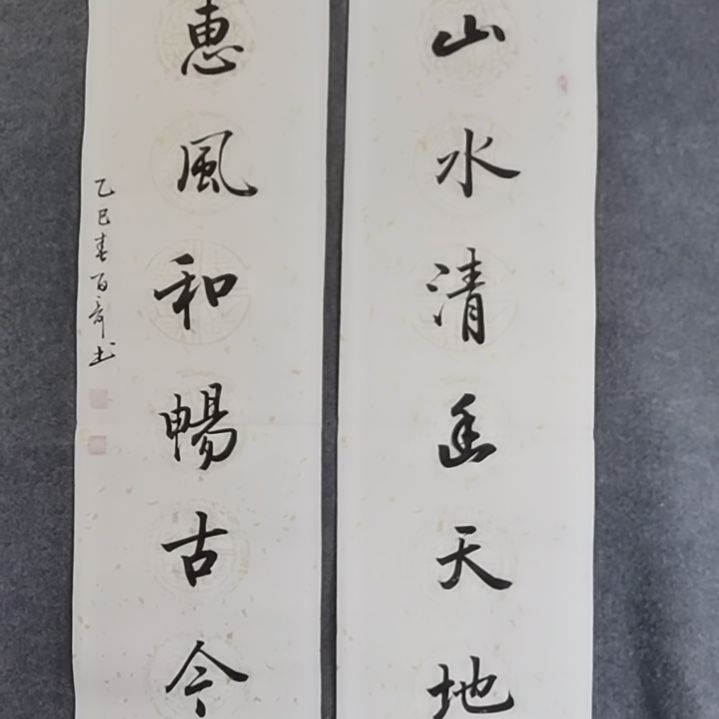 山水清幽天地
惠風和暢古今
乙巳春百书